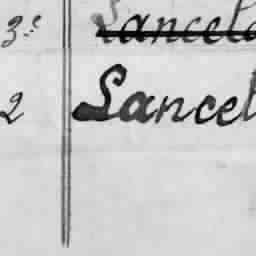 3º Lancelo
2 Lancel